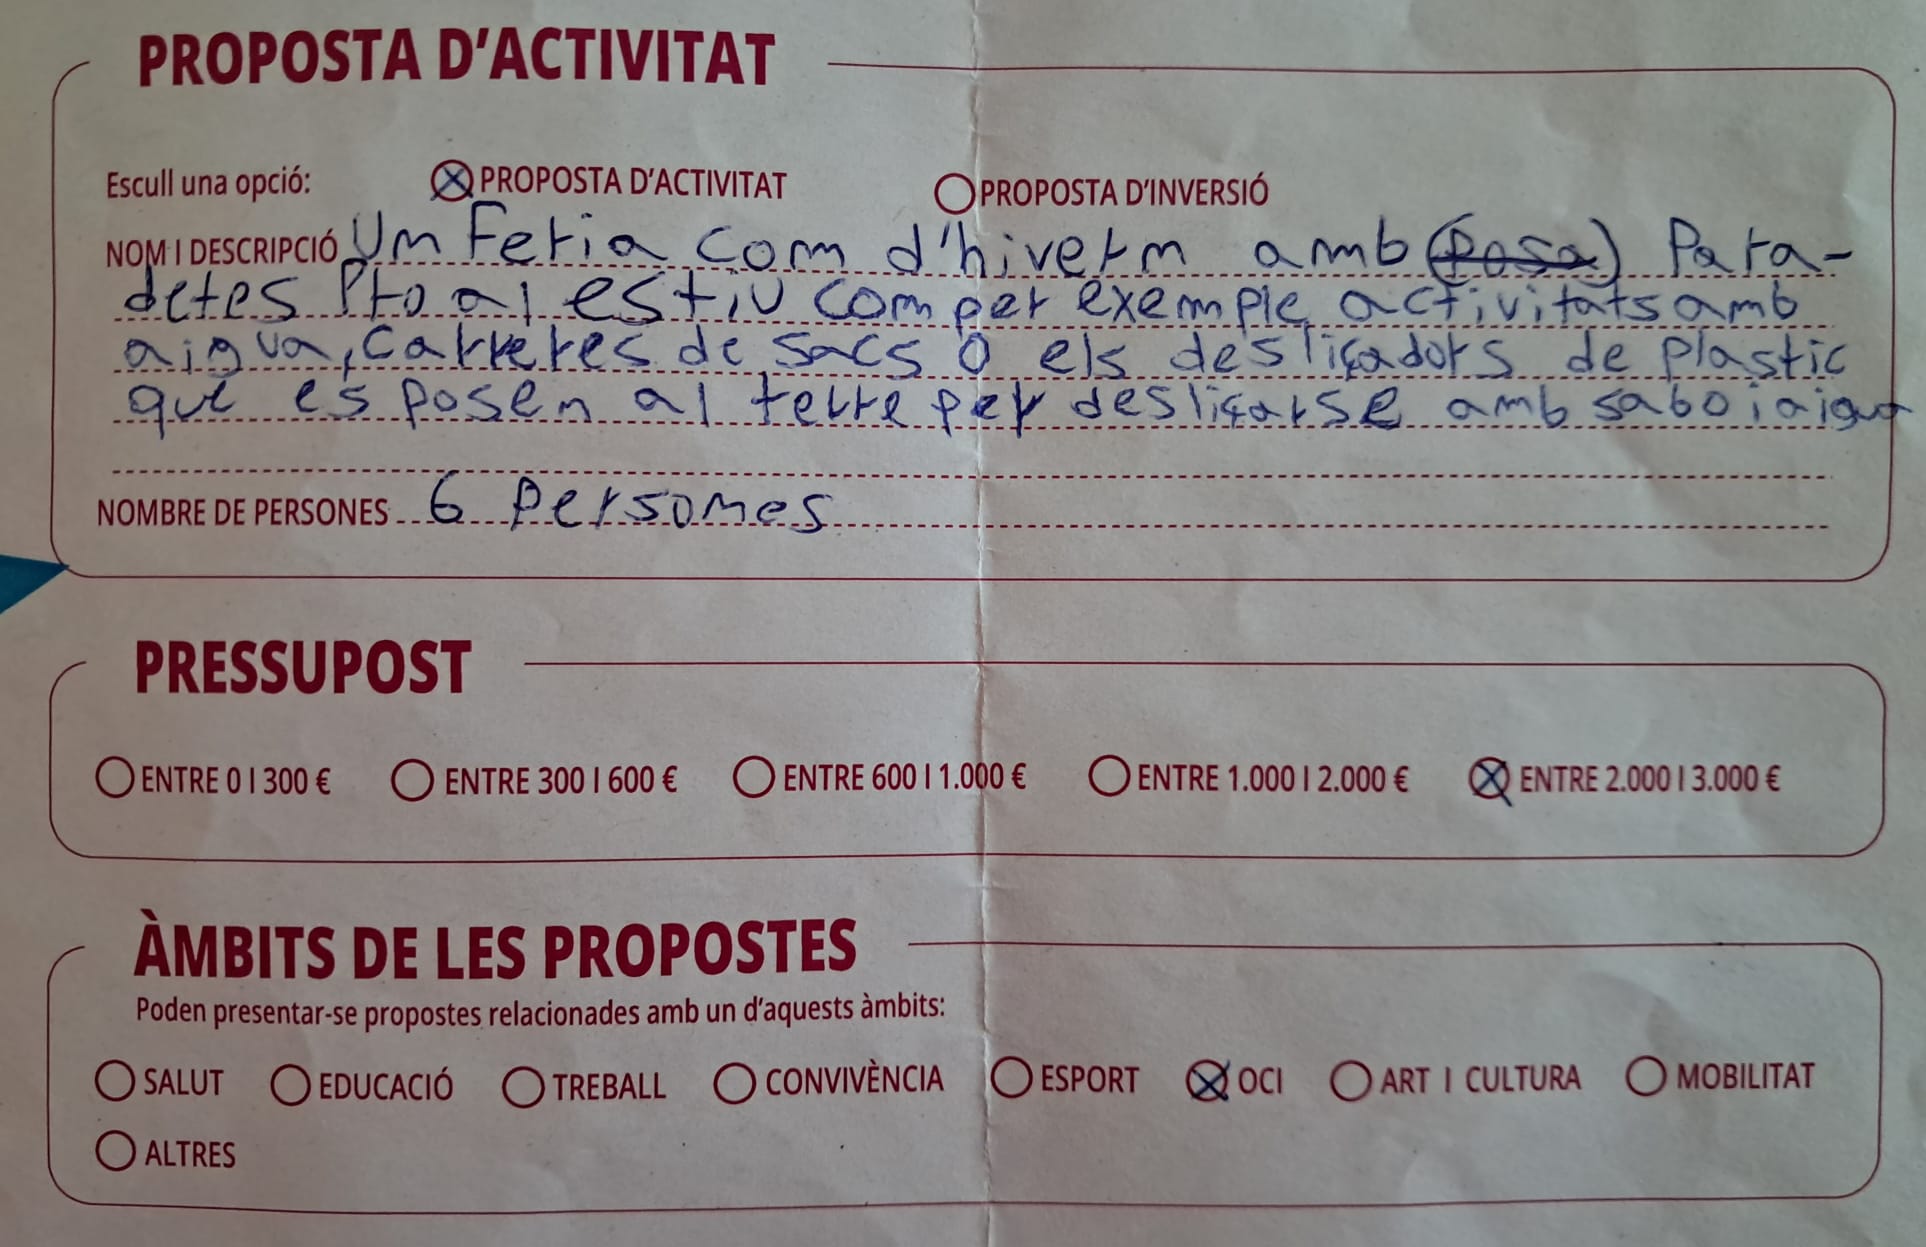 PROPOSTA D'ACTIVITAT
Escull una opció: PROPOSTA D'ACTIVITAT PROPOSTA D'INVERSIÓ
NOM I DESCRIPCIÓ Un Feria com d'hivern amb (posa) Para-
detes Pro al estiu com per exemple activitats amb
aigua, carreres de sacs o els desliçadors de plastic
que es posen al terre per desliçarse amb sabo i aigua
NOMBRE DE PERSONES 6 Persones
PRESSUPOST
ENTRE 0 I 300 € ENTRE 300 I 600 € ENTRE 600 I 1.000 € ENTRE 1.000 I 2.000 € ENTRE 2.000 I 3.000 €
ÀMBITS DE LES PROPOSTES
Poden presentar-se propostes relacionades amb un d'aquests àmbits:
SALUT EDUCACIÓ TREBALL CONVIVÈNCIA ESPORT OCI ART I CULTURA MOBILITAT
ALTRES